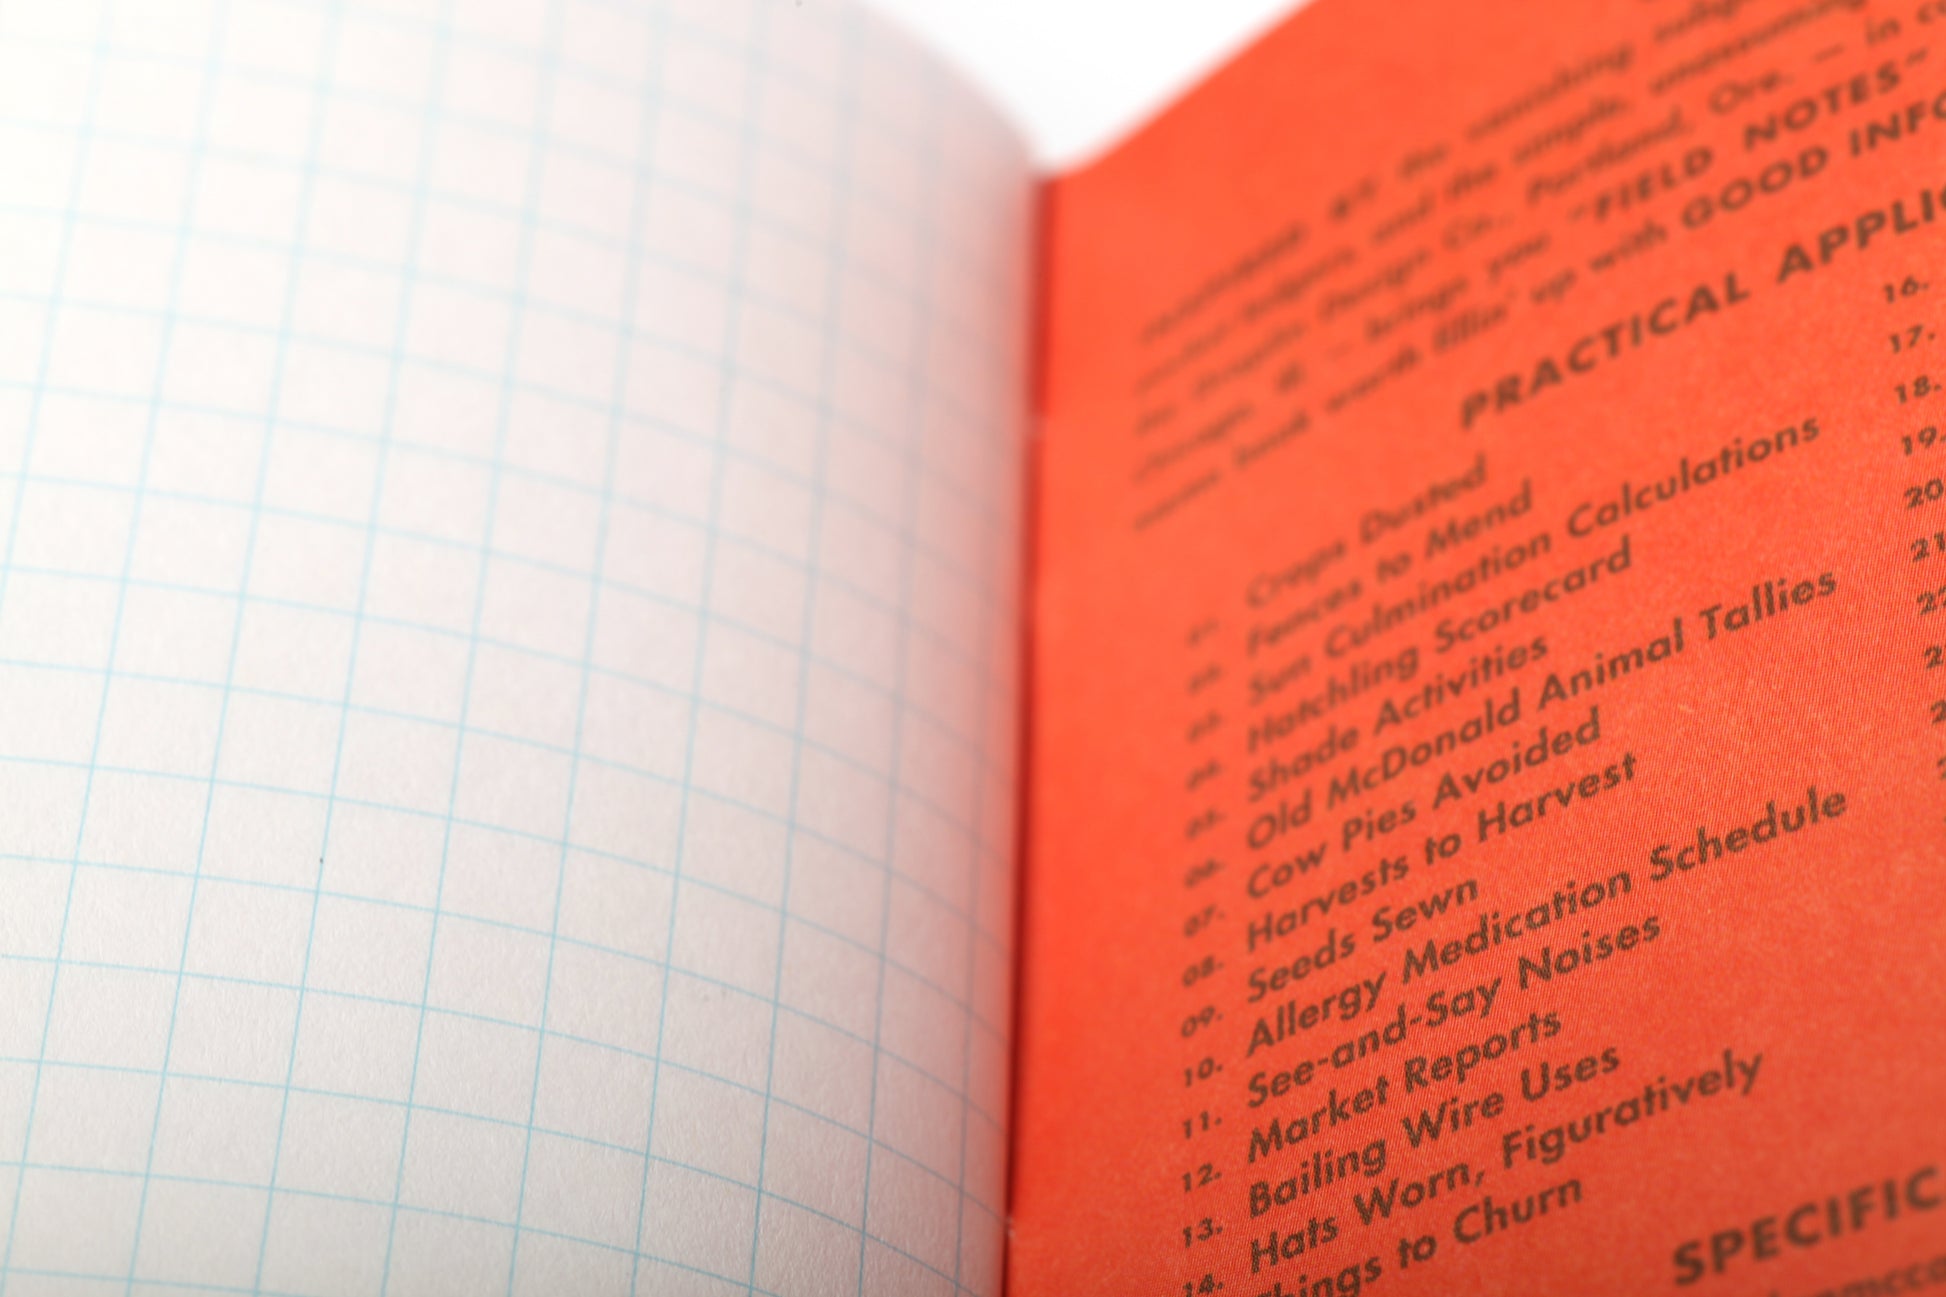 the vanishing
and the simple, unassuming
Design Co., Portland, Ore. — in co
— brings you "FIELD NOTES"
book worth fillin' up with GOOD INFO
PRACTICAL APPLIC
Crops Dusted
01. Fences to Mend
02. Sun Culmination Calculations
03. Hatchling Scorecard
04. Shade Activities
05. Old McDonald Animal Tallies
06. Cow Pies Avoided
07. Harvests to Harvest
08. Seeds Sewn
09. Allergy Medication Schedule
10. See-and-Say Noises
11. Market Reports
12. Bailing Wire Uses
13. Hats Worn, Figuratively
14. Things to Churn
16.
17.
18.
19.
20
21
22
SPECIFIC